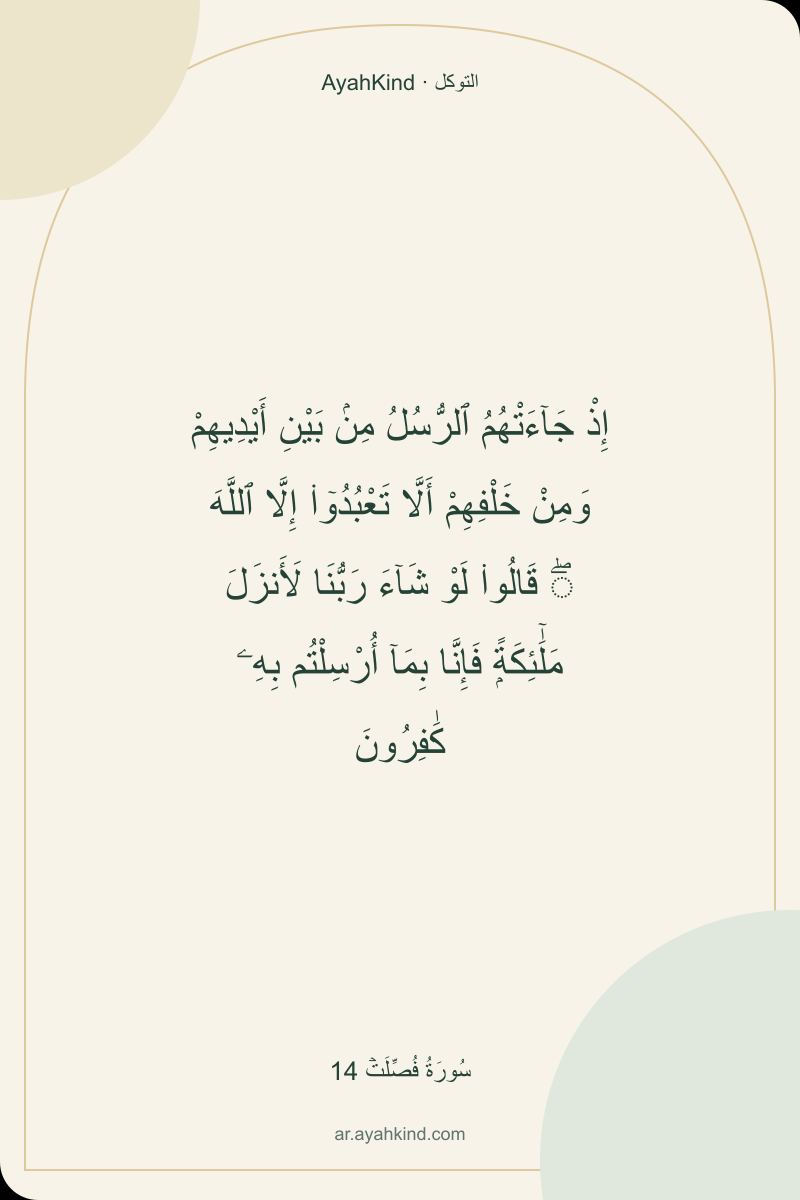 التوكل · AyahKind
إِذْ جَآءَتْهُمُ ٱلرُّسُلُ مِنۢ بَيْنِ أَيْدِيهِمْ
وَمِنْ خَلْفِهِمْ أَلَّا تَعْبُدُوٓا۟ إِلَّا ٱللَّهَ
ۖ قَالُوا۟ لَوْ شَآءَ رَبُّنَا لَأَنزَلَ
مَلَـٰٓئِكَةًۭ فَإِنَّا بِمَآ أُرْسِلْتُم بِهِۦ
كَـٰفِرُونَ
سُورَةُ فُصِّلَتۡ 14
ar.ayahkind.com